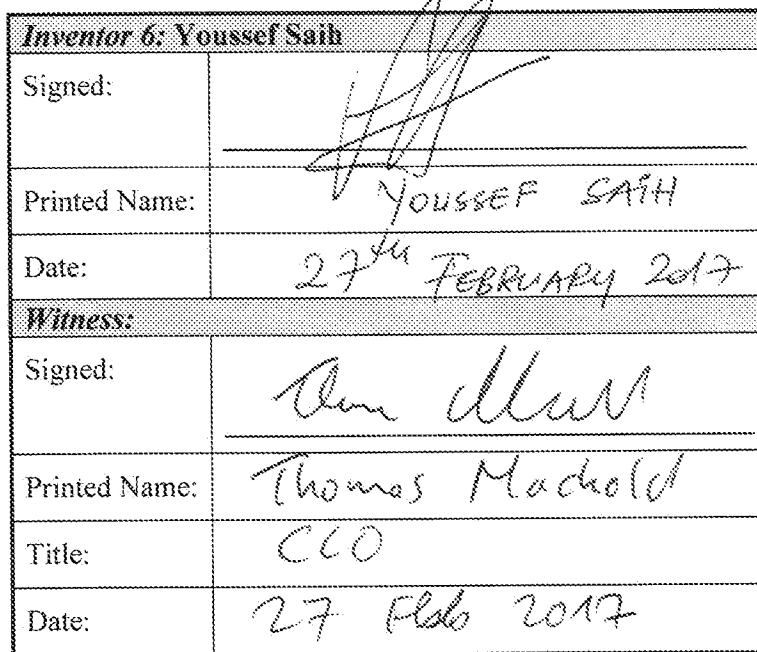 Inventor 6: Youssef Saih
Signed:
Printed Name: YOUSSEF SAIH
Date: 27th FEBRUARY 2017
Witness:
Signed:
Printed Name: Thomas Machold
Title: CCO
Date: 27 Feb 2017